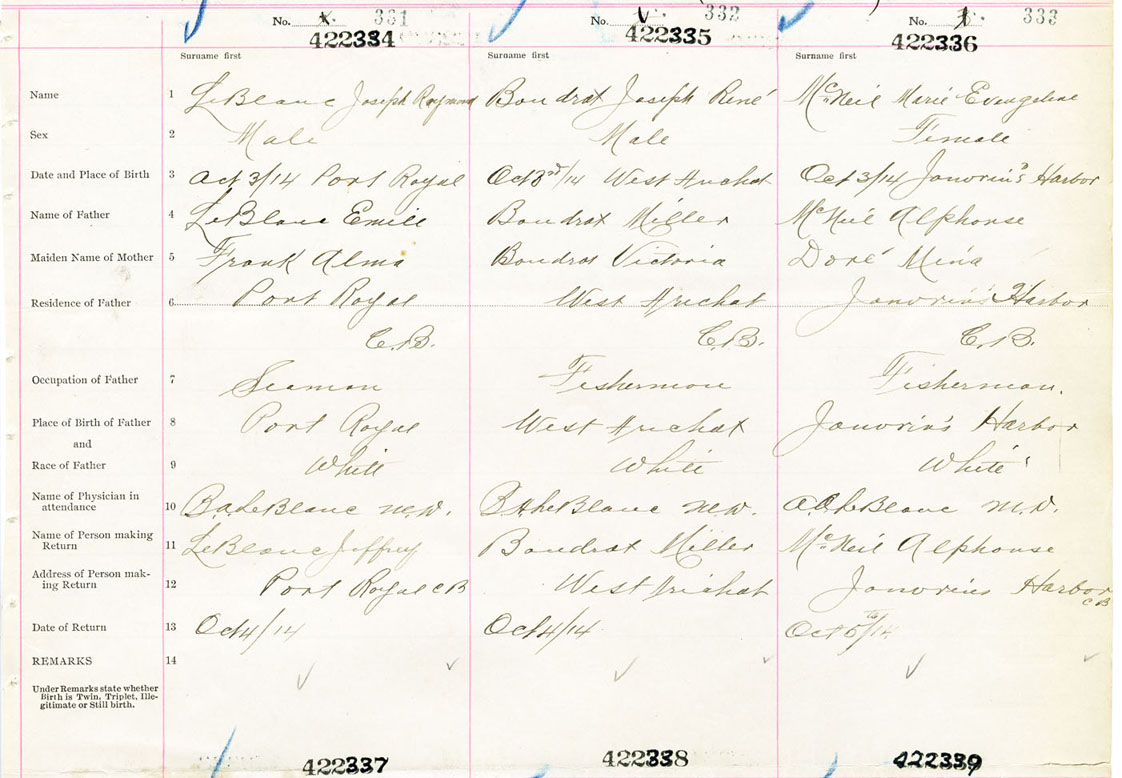 No. 331 No. 332 No. 333
422334 422335 422336
Surname first Surname first Surname first
Name 1 LeBlanc Joseph Raymond Boudrot Joseph René McNeil Marie Evangeline
Sex 2 Male Male Female
Date and Place of Birth 3 Oct 3/14 Port Royal Oct 3rd/14 West Arichat Oct 3/14 Janvrin's Harbor
Name of Father 4 LeBlanc Emile Boudrot Miller McNeil Alphonse
Maiden Name of Mother 5 Frank Alma Boudrot Victoria Doré Mina
Residence of Father 6 Port Royal West Arichat Janvrin's Harbor
C.B. C.B. C.B.
Occupation of Father 7 Seaman Fisherman Fisherman.
Place of Birth of Father 8 Port Royal West Arichat Janvrin's Harbor
and
Race of Father 9 White White White
Name of Physician in
attendance 10 B.A. LeBlanc M.D. B A LeBlanc M.D. LeBlanc M.D.
Name of Person making
Return 11 LeBlanc Jeffrey Boudrot Miller McNeil Alphonse
Address of Person mak-
ing Return 12 Port Royal CB West Arichat Janvrins Harbor
CB
Date of Return 13 Oct 4/14 Oct 4/14 Oct 5th/14
REMARKS 14
Under Remarks state whether
Birth is Twin, Triplet, Ille-
gitimate or Still birth.
422337 422338 422339